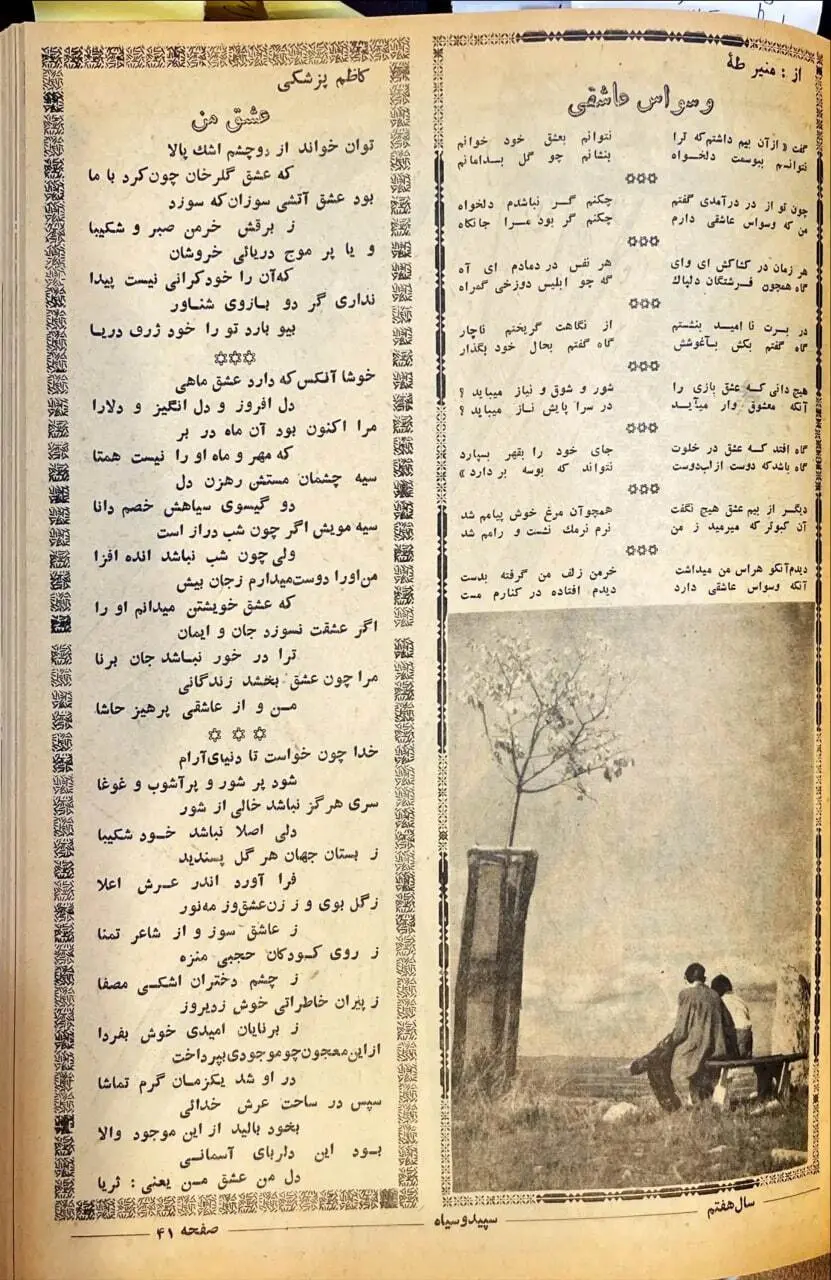 از : منیر طهٔ
وسواس عاشقی
گفت « از آن بیم داشتم که ترا نتوانم بعشق خود خوانم
نتوانم ببوسمت دلخواه بنشانم چو گل بدامانم
✡✡✡
چون تو از در درآمدی گفتم چکنم گر نباشدم دلخواه
من که وسواس عاشقی دارم چکنم گر بود مرا جانکاه
✡✡✡
هر زمان در کشاکش ای وای هر نفس در دمادم ای آه
گاه همچون فرشتگان دلپاک گه چو ابلیس دوزخی گمراه
✡✡✡
در برت نا امید بنشستم از نگاهت گریختم ناچار
گاه گفتم بکش بآغوشش گاه گفتم بحال خود بگذار
✡✡✡
هیچ دانی که عشق بازی را شور و شوق و نیاز میباید ؟
آنکه معشوق وار میآید در سرا پایش ناز میباید ؟
✡✡✡
گاه افتد که عشق در خلوت جای خود را بقهر بسپارد
گاه باشد که دوست از لب دوست نتواند که بوسه بر دارد »
✡✡✡
دیگر از بیم عشق هیچ نگفت همچو آن مرغ خوش پیامم شد
آن کبوتر که میرمید ز من نرم نرمک نشست و رامم شد
✡✡✡
دیدم آنکو هراس من میداشت خرمن زلف من گرفته بدست
آنکه وسواس عاشقی دارد دیدم افتاده در کنارم مست
کاظم پزشکی
عشق من
توان خواند از دو چشم اشک پالا
که عشق گلرخان چون کرد با ما
بود عشق آتشی سوزان که سوزد
ز برقش خرمن صبر و شکیبا
و یا پر موج دریائی خروشان
که آن را خود کرانی نیست پیدا
نداری گر دو بازوی شناور
بیو بارد تو را خود ژرف دریا
✡✡✡
خوشا آنکس که دارد عشق ماهی
دل افروز و دل انگیز و دلارا
مرا اکنون بود آن ماه در بر
که مهر و ماه او را نیست همتا
سیه چشمان مستش رهزن دل
دو گیسوی سیاهش خصم دانا
سیه مویش اگر چون شب دراز است
ولی چون شب نباشد انده افزا
من او را دوست میدارم ز جان بیش
که عشق خویشتن میدانم او را
اگر عشقت نسوزد جان و ایمان
ترا در خور نباشد جان برنا
مرا چون عشق بخشد زندگانی
من و از عاشقی پرهیز حاشا
✡ ✡ ✡
خدا چون خواست تا دنیای آرام
شود پر شور و پر آشوب و غوغا
سری هرگز نباشد خالی از شور
دلی اصلا نباشد خود شکیبا
ز بستان جهان هر گل پسندید
فرا آورد اندر عرش اعلا
ز گل بوی و ز زن عشق و ز مه نور
ز عاشق سوز و از شاعر تمنا
ز روی کودکان حجبی منزه
ز چشم دختران اشکی مصفا
ز پیران خاطراتی خوش ز دیروز
ز برنایان امیدی خوش بفردا
از این معجون چو موجودی بپرداخت
در او شد یکزمان گرم تماشا
سپس در ساحت عرش خدائی
بخود بالید از این موجود والا
بود این دلربای آسمانی
دل من عشق من یعنی : ثریا
سال هفتم
سپید و سیاه
صفحه ۴۱